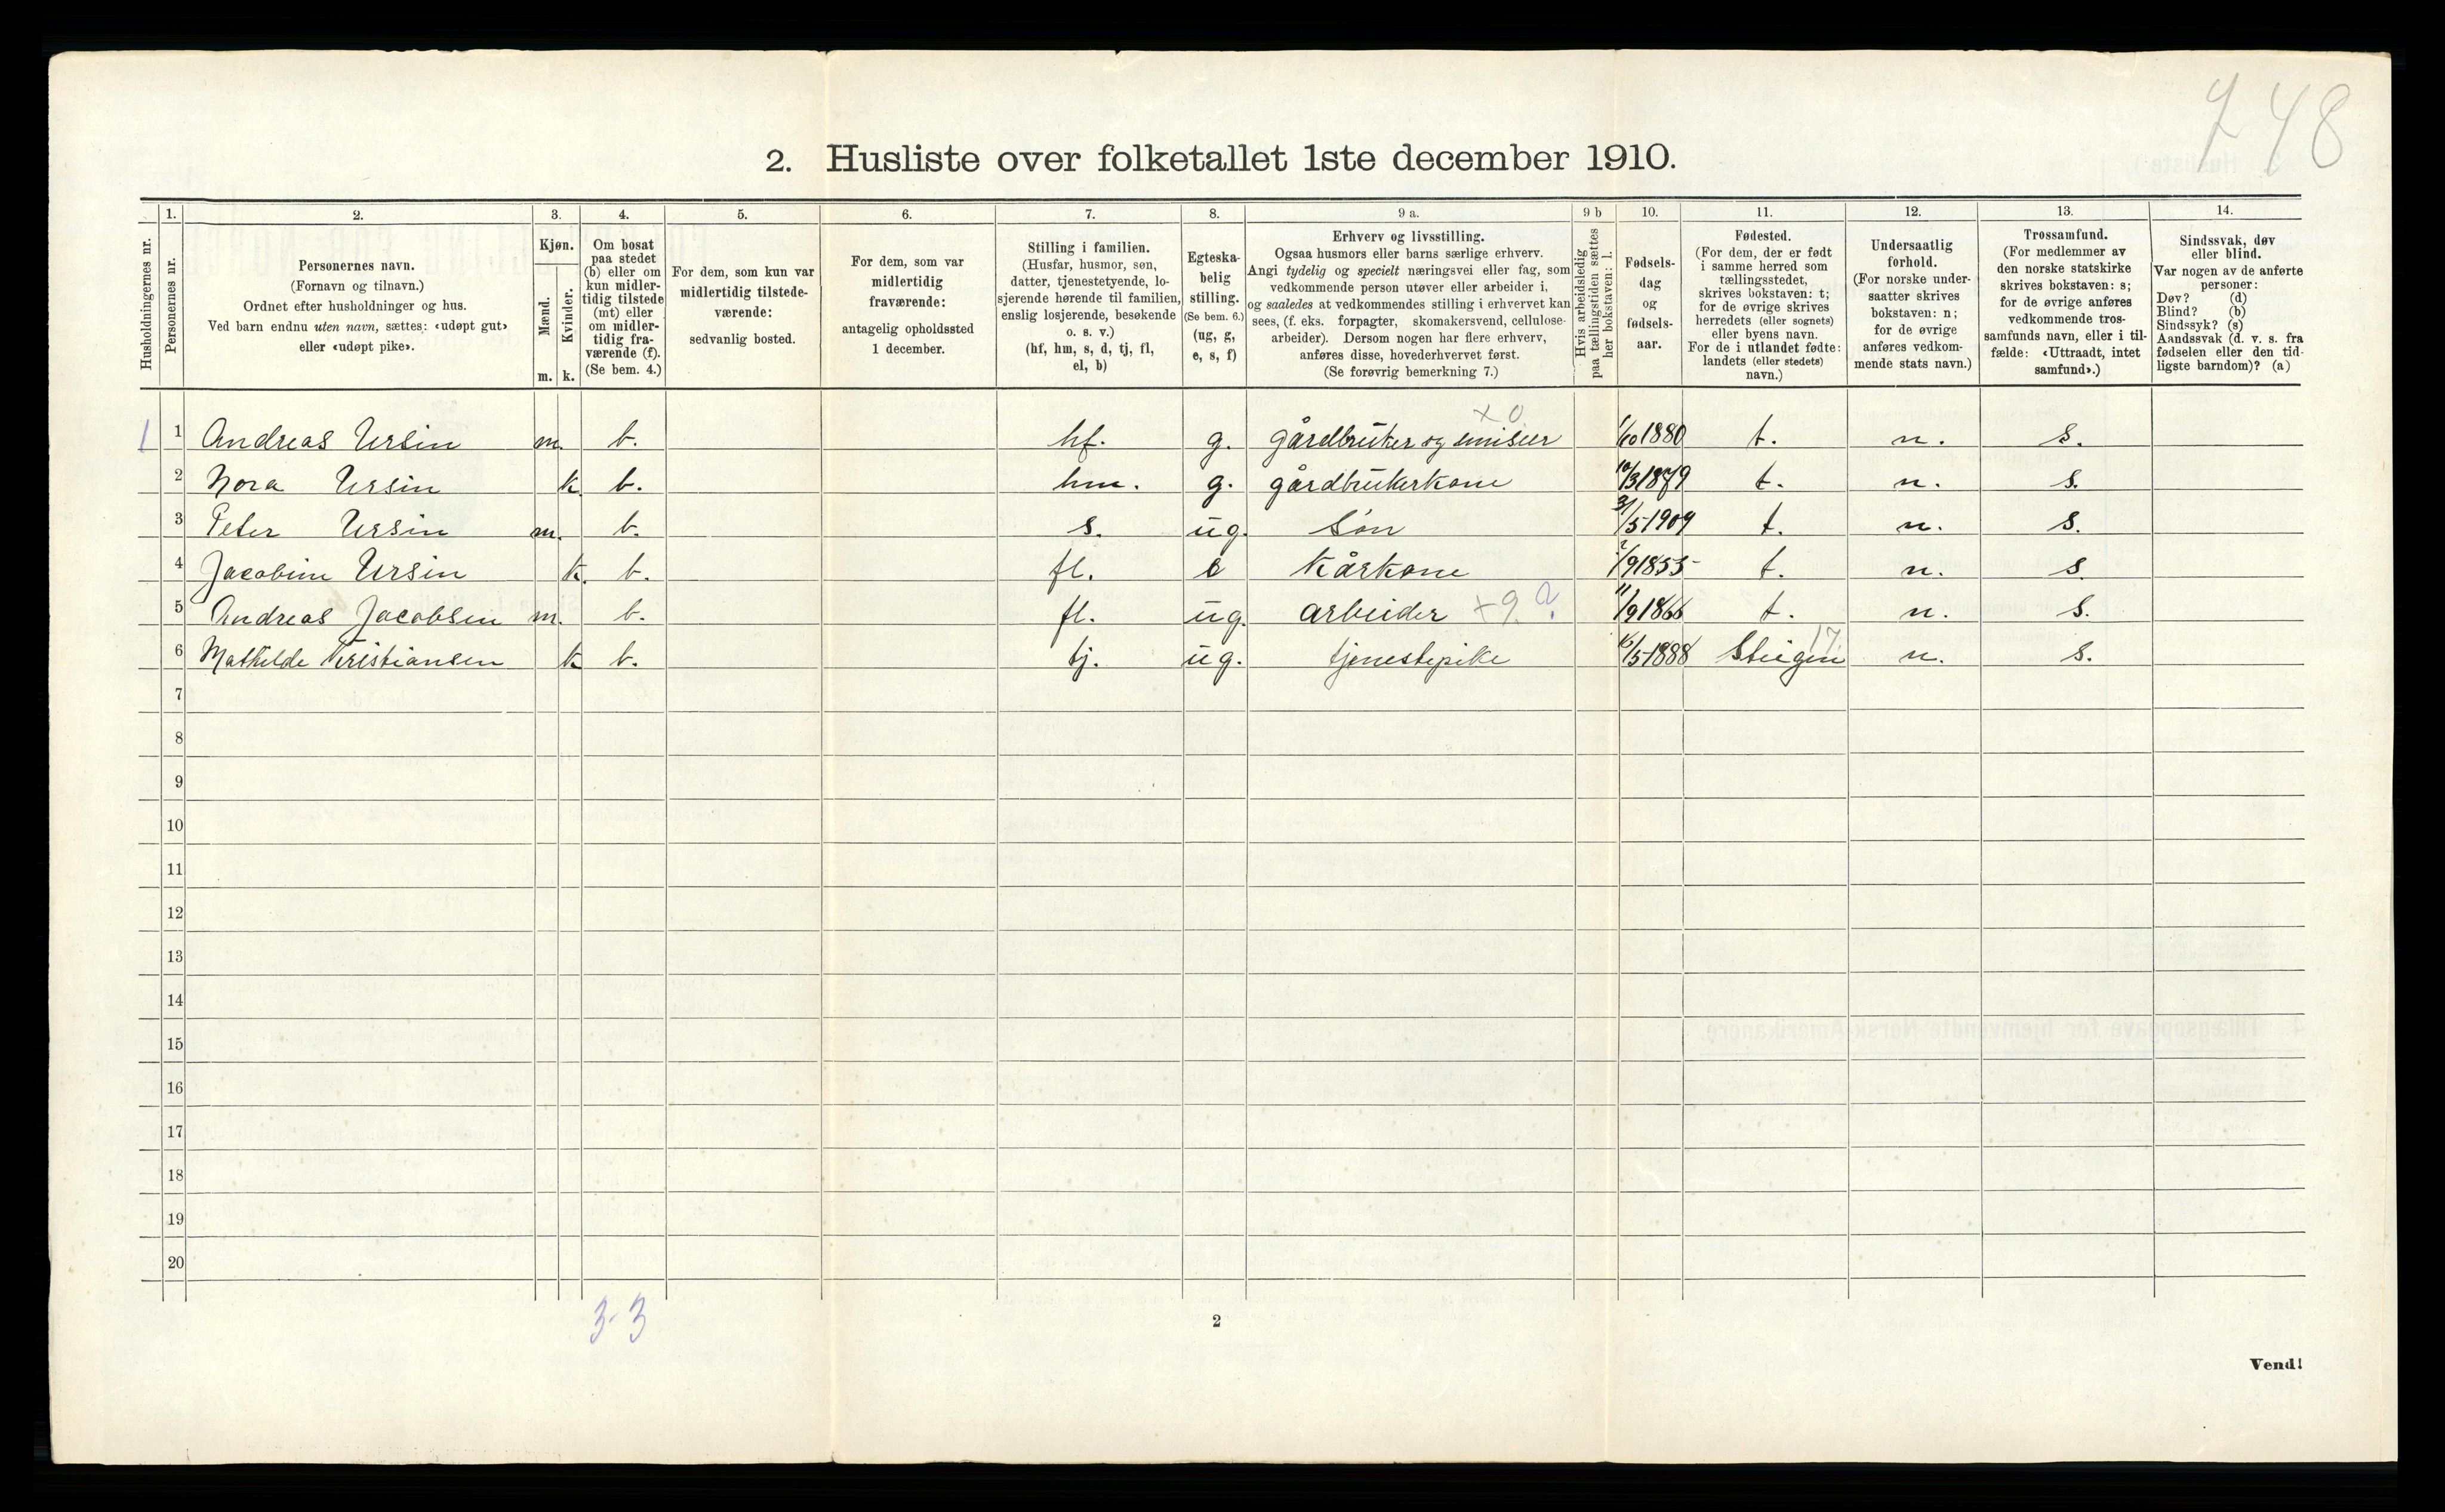 748
2. Husliste over folketallet 1ste december 1910.
Husholdningernes nr.
1.
Personernes nr.
2.
Personernes navn.
(Fornavn og tilnavn.)
Ordnet efter husholdninger og hus.
Ved barn endnu uten navn, sættes: «udøpt gut»
eller «udøpt pike».
3.
Kjøn.
Mænd.
Kvinder.
m. k.
4.
Om bosat
paa stedet
(b) eller om
kun midler-
tidig tilstede
(mt) eller
om midler-
tidig fra-
værende (f).
(Se bem. 4.)
5.
For dem, som kun var
midlertidig tilstede-
værende:
sedvanlig bosted.
6.
For dem, som var
midlertidig
fraværende:
antagelig opholdssted
1 december.
7.
Stilling i familien.
(Husfar, husmor, søn,
datter, tjenestetyende, lo-
sjerende hørende til familien,
enslig losjerende, besøkende
o. s. v.)
(hf, hm, s, d, tj, fl,
el, b)
8.
Egteska-
belig
stilling.
(Se bem. 6.)
(ug, g,
e, s, f)
9 a.
Erhverv og livsstilling.
Ogsaa husmors eller barns særlige erhverv.
Angi tydelig og specielt næringsvei eller fag, som
vedkommende person utøver eller arbeider i,
og saaledes at vedkommendes stilling i erhvervet kan
sees, (f. eks. forpagter, skomakersvend, cellulose-
arbeider). Dersom nogen har flere erhverv,
anføres disse, hovederhvervet først.
(Se forøvrig bemerkning 7.)
9 b
Hvis arbeidsledig
paa tællingstiden sættes
her bokstaven: l.
10.
Fødsels-
dag
og
fødsels-
aar.
11.
Fødested.
(For dem, der er født
i samme herred som
tællingsstedet,
skrives bokstaven: t;
for de øvrige skrives
herredets (eller sognets)
eller byens navn.
For de i utlandet fødte:
landets (eller stedets)
navn.)
12.
Undersaatlig
forhold.
(For norske under-
saatter skrives
bokstaven: n;
for de øvrige
anføres vedkom-
mende stats navn.)
13.
Trossamfund.
(For medlemmer av
den norske statskirke
skrives bokstaven: s;
for de øvrige anføres
vedkommende tros-
samfunds navn, eller i til-
fælde: «Uttraadt, intet
samfund».)
14.
Sindssvak, døv
eller blind.
Var nogen av de anførte
personer:
Døv? (d)
Blind? (b)
Sindssyk? (s)
Aandssvak (d. v. s. fra
fødselen eller den tid-
ligste barndom)? (a)
x 0
1 1 Andreas Ursin m. b. hf. g. gårdbruker og 1/10 1880 t. n. s.
2 Nora Ursin k. b. hm. g. gårdbrukerkone 10/3 1879 t. n. s.
3 Peter Ursin m. b. s. ug. Søn 1909 t. n. s.
4 Jacobine Ursin k. b. fl. e kårkone t. n. s.
5 Andreas Jacobsen m. b. fl. ug. arbeider x 9. ? 11/9 1866 t. n. s.
17
6 Mathilde Kristiansen k b. tj. ug. tjenestepike 1888 Steigen n. s.
7
8
9
10
11
12
13
14
15
16
17
18
19
20
3-3
2
Vend!